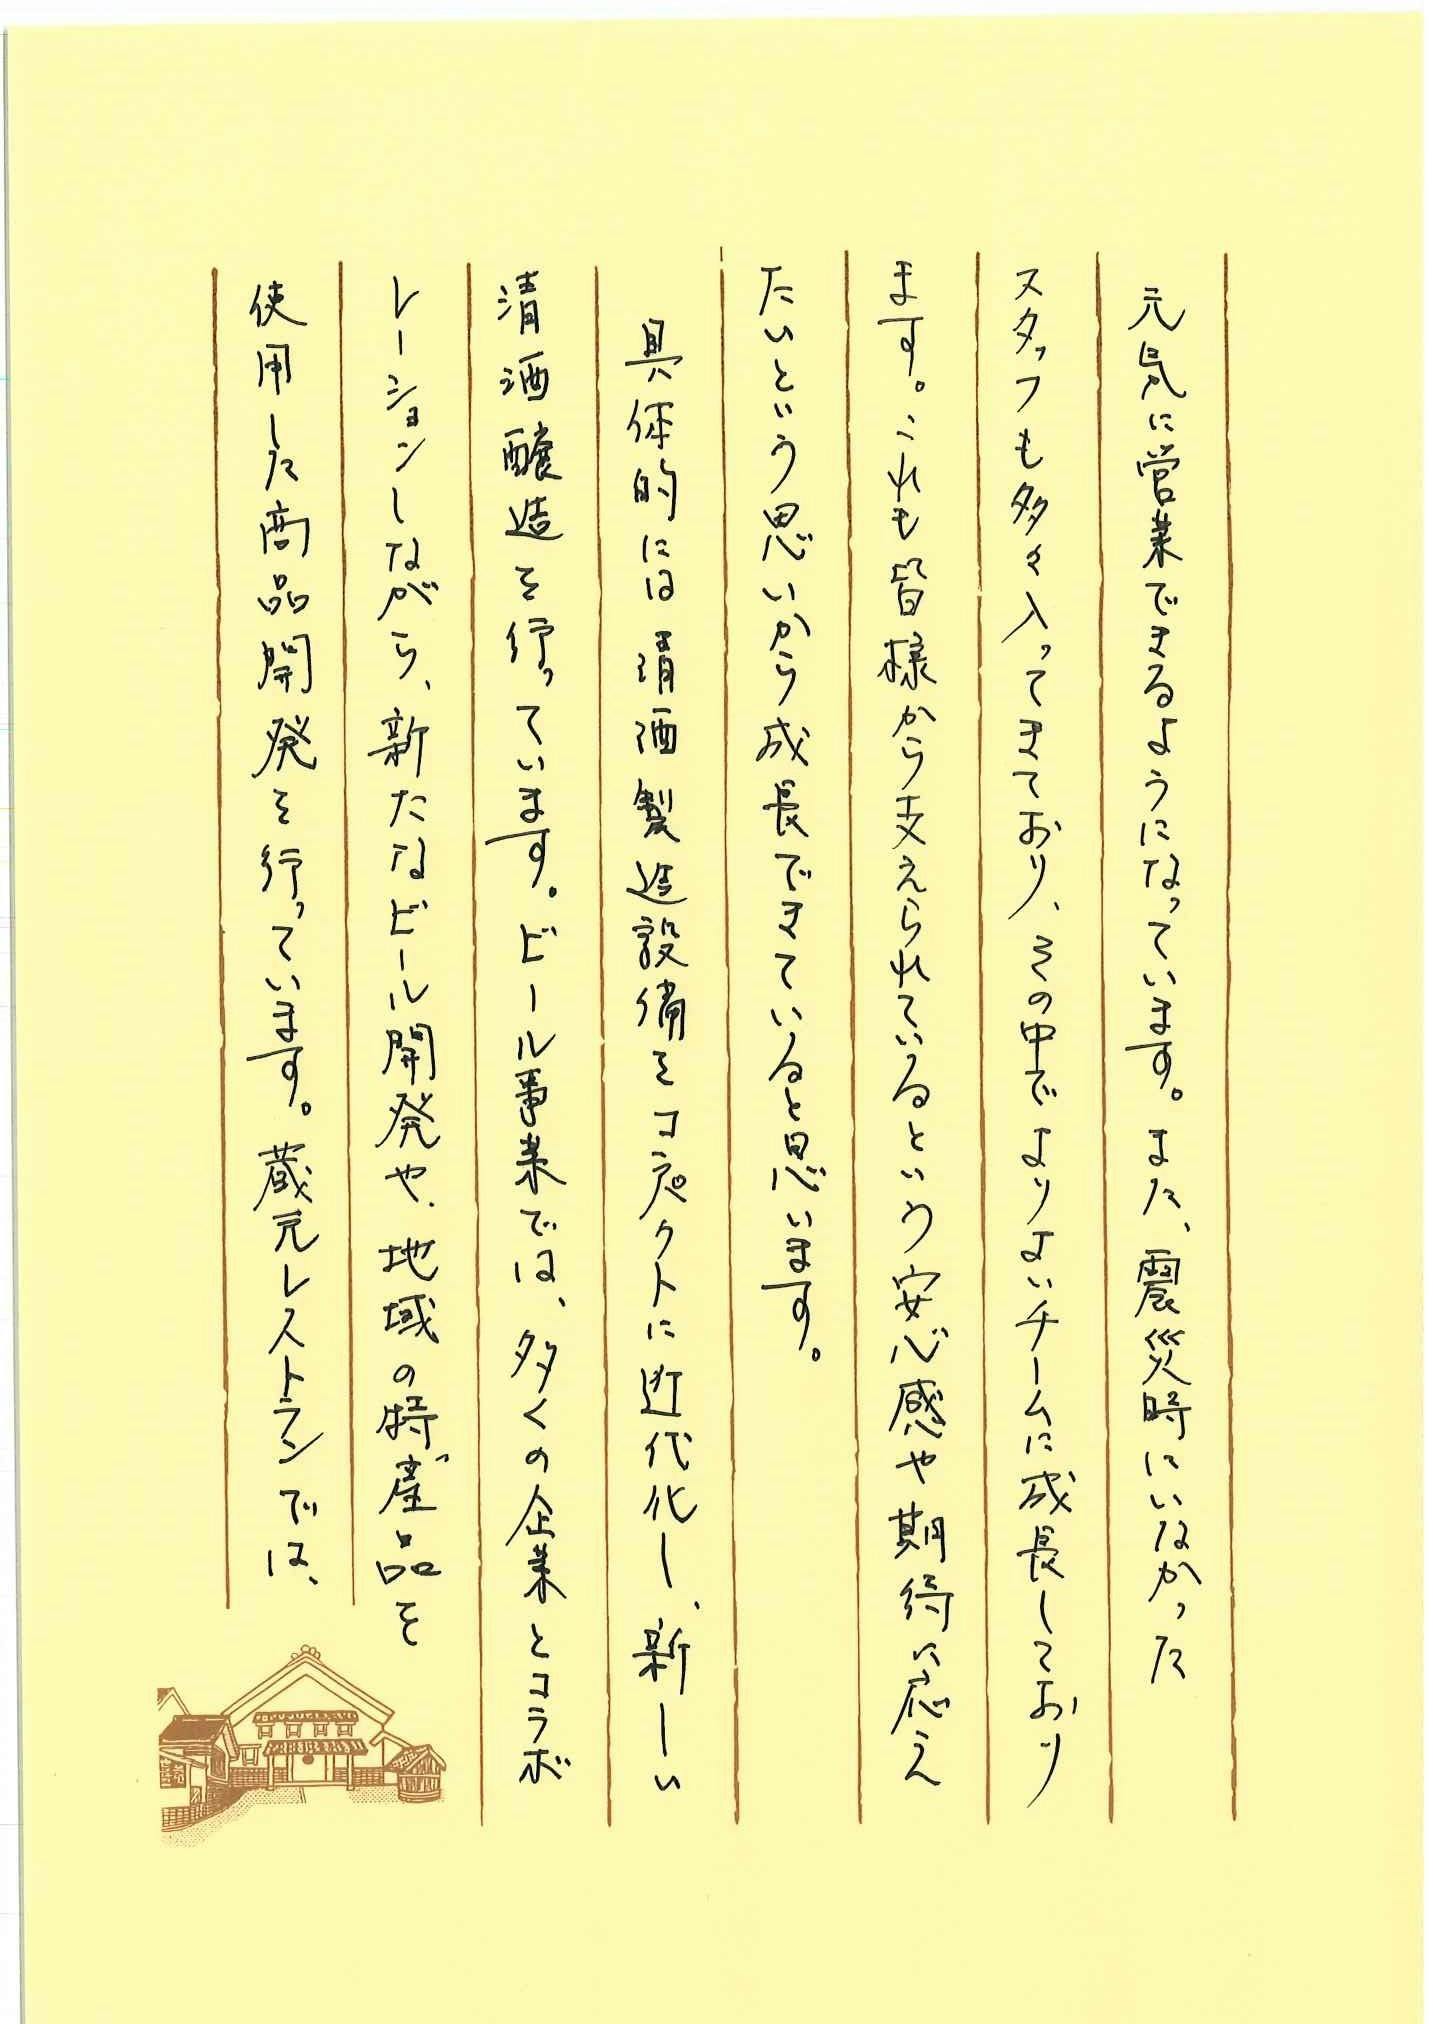 元気に営業できるようになっています。また、震災時にいなかった
スタッフも多々入ってきており、その中でよりよいチームに成長しており
ます。これも皆様から支えられているという安心感や期待に応え
たいという思いから成長できていると思います。
具体的には清酒製造設備をコンパクトに近代化し、新しい
清酒醸造を行っています。ビール事業では、多くの企業とコラボ
レーションしながら、新たなビール開発や、地域の特産品を
使用した商品開発を行っています。蔵元レストランでは、